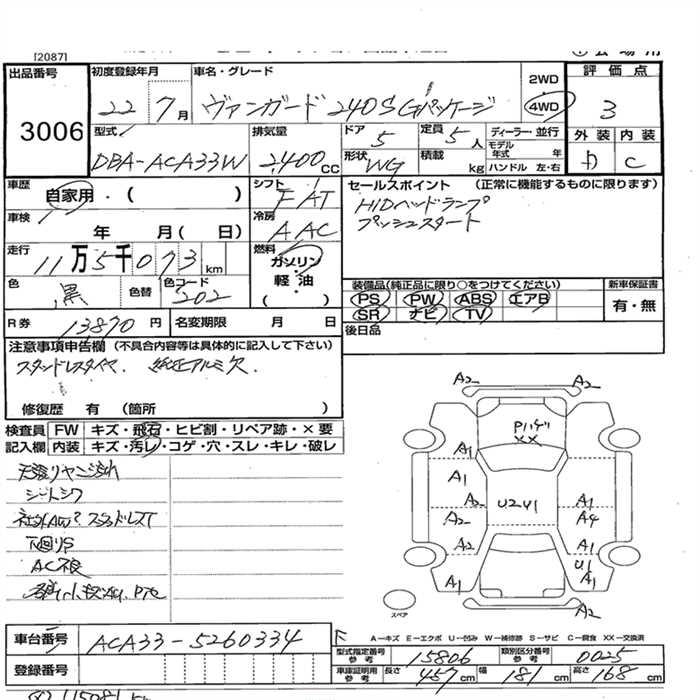 [2087]
出品番号
3006
初度登録年月
22 7月
車名・グレード
ヴァンガード 240S Gパッケージ
2WD
4WD
評価点
3
型式
DBA-ACA33W
排気量
2,400cc
ドア
5
定員
5人
ディーラー・並行
モデル年式 年
外装 内装
D C
形状
WG
積載
kg
ハンドル 左・右
車歴
自家用・( )
シフト
FAT
セールスポイント (正常に機能するものに限ります)
HIDヘッドランプ
プッシュスタート
車検
年 月( 日)
冷房
AAC
走行
11万5千073km
燃料
ガソリン・軽油
( )
色
黒
色替
色コード
202
装備品(純正品に限り○をつけてください)
PS PW ABS エアB
SR ナビ TV
新車保証書
有・無
R券
13870円
名変期限 月 日
後日品
注意事項申告欄 (不具合内容等は具体的に記入して下さい)
スタッドレスタイヤ. 純正アルミ欠.
修復歴 有 (箇所 )
検査員記入欄
FW キズ・飛石・ヒビ割・リペア跡・×要
内装 キズ・汚レ・コゲ・穴・スレ・キレ・破レ
シートシワ
下回りS
AC不良
A2 A2
Pハゲ
XX
A1
A1
A2
A2
A2
A1
U2 U1
A1
A4
A1
U1
A1
A1
A2
スペア
A－キズ E－エクボ U－凹み W－補修跡 S－サビ C－腐食 XX－交換済
車台番号
ACA33-5260334
登録番号
型式指定番号 参考
15806
類別区分番号 参考
0025
車庫証明用 参考
長さ 457cm
幅 181cm
高さ 168cm